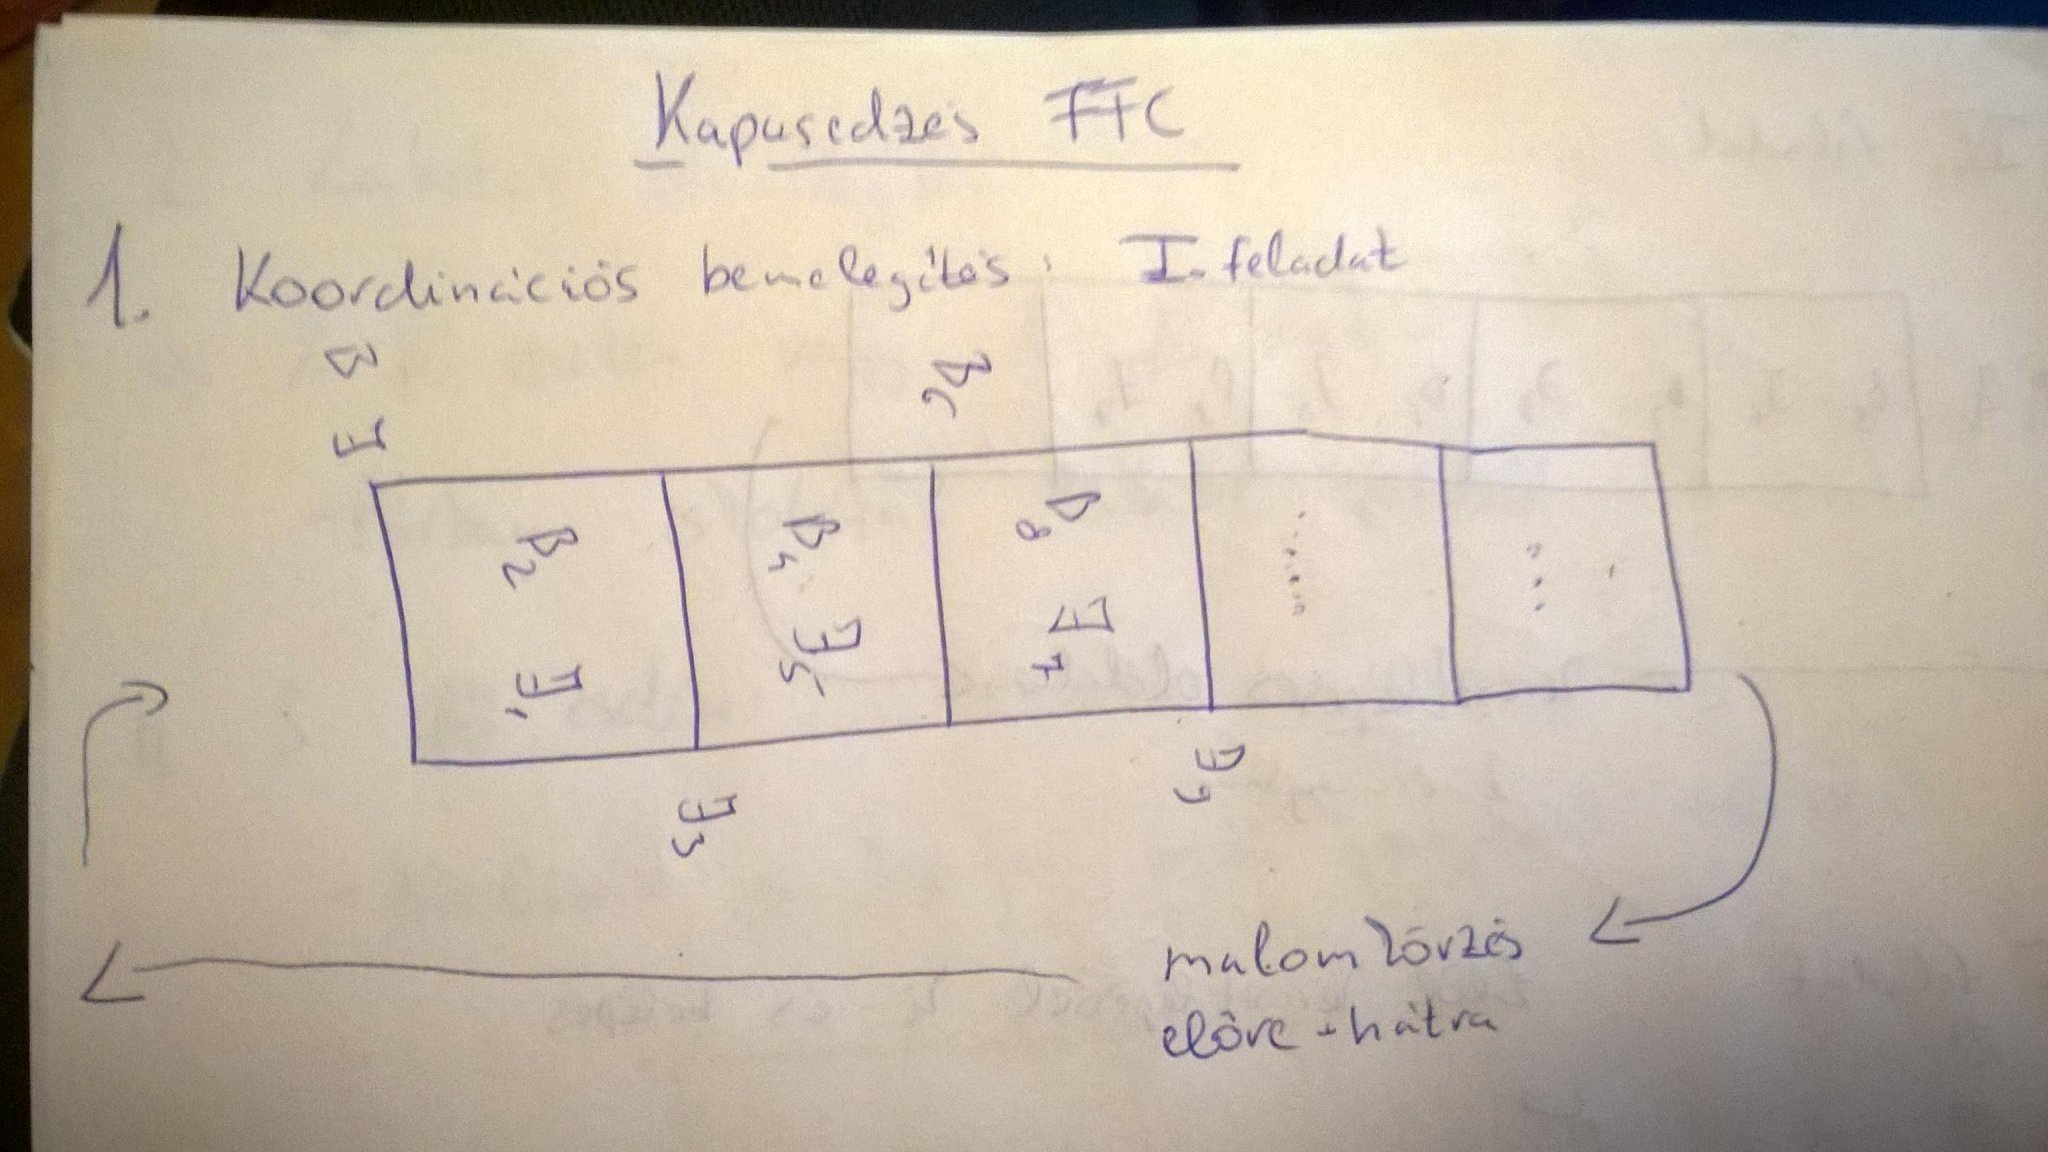 Kapusedzés FTC
1. Koordinációs bemelegítés: I. feladat
B
J
B6
B2
J1
B4
J5
B8
J7
.....
...
J3
J9
malomkörzés
előre + hátra